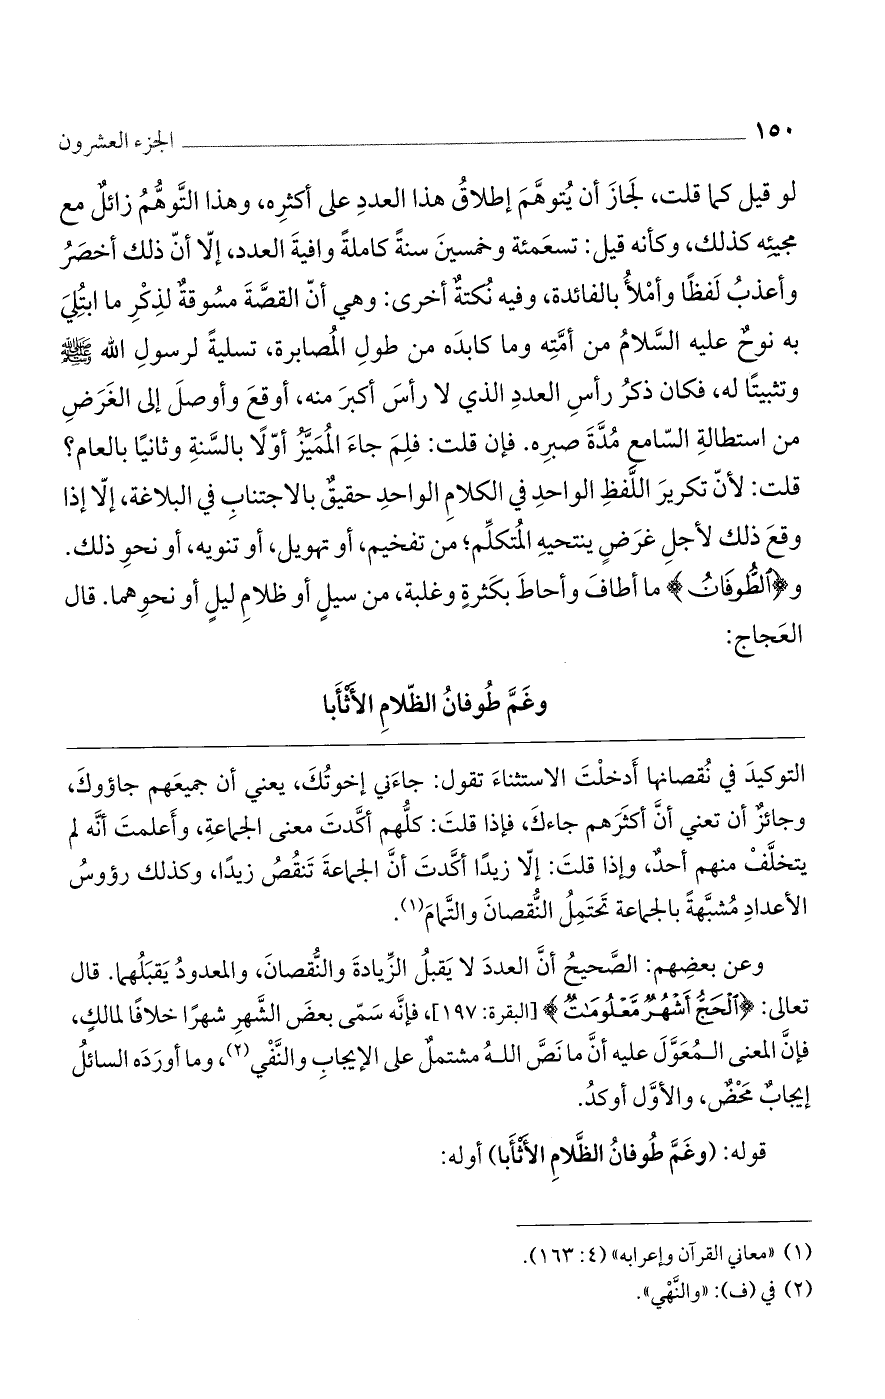 ١٥٠ الجزء العشرون
لو قيل كما قلت، لَجازَ أن يُتوهَّمَ إطلاقُ هذا العددِ على أكثرِه، وهذا التَّوهُّمُ زائلٌ مع
مجيئِه كذلك، وكأنه قيل: تسعَمئة وخمسينَ سنةً كاملةً وافيةَ العدد، إلّا أنّ ذلك أخصَرُ
وأعذبُ لَفظًا وأمْلأُ بالفائدة، وفيه نُكتةٌ أخرى: وهي أنّ القصَّةَ مسُوقةٌ لذِكْرِ ما ابتُلِيَ
به نوحٌ عليه السَّلامُ من أمَّتِه وما كابدَه من طولِ المُصابرة، تسليةً لرسولِ الله ﷺ
وتثبيتًا له، فكان ذكرُ رأسِ العددِ الذي لا رأسَ أكبرَ منه، أوقعَ وأوصلَ إلى الغَرَضِ
من استطالةِ السّامعِ مُدَّةَ صبرِه. فإن قلت: فلِمَ جاءَ المُمَيَّزُ أوّلًا بالسَّنةِ وثانيًا بالعام؟
قلت: لأنّ تكريرَ اللَّفظِ الواحدِ في الكلامِ الواحدِ حقيقٌ بالاجتنابِ في البلاغة، إلّا إذا
وقعَ ذلك لأجلِ غرَضٍ ينتحيهِ المُتكلِّم؛ من تفخيم، أو تهويل، أو تنويه، أو نحوِ ذلك.
و﴿ٱلطُّوفَانُ﴾ ما أطافَ وأحاطَ بكَثرةٍ وغلبة، من سيلٍ أو ظلامِ ليلٍ أو نحوِهما. قال
العَجاج:
وغَمَّ طُوفانُ الظّلامِ الأَثْأَبا
التوكيدَ في نُقصانها أَدخلْتَ الاستثناءَ تقول: جاءَني إخوتُكَ، يعني أن جميعَهم جاؤوكَ،
وجائزٌ أن تعني أنَّ أكثرَهم جاءكَ، فإذا قلتَ: كلُّهم أكَّدتَ معنى الجماعةِ، وأَعلمتَ أنَّه لم
يتخلَّفْ منهم أحدٌ، وإذا قلتَ: إلّا زيدًا أكَّدتَ أنَّ الجماعةَ تَنقُصُ زيدًا، وكذلك رؤوسُ
الأعدادِ مُشبَّهةً بالجماعة تَحتَمِلُ النُّقصانَ والتَّمامَ(١).
وعن بعضِهم: الصَّحيحُ أنَّ العددَ لا يَقبلُ الزِّيادةَ والنُّقصانَ، والمعدودُ يَقبَلُهما. قال
تعالى: ﴿ٱلْحَجُّ أَشْهُرٌ مَّعْلُومَٰتٌ﴾ [البقرة: ١٩٧]، فإنَّه سَمّى بعضَ الشَّهرِ شهرًا خلافًا لمالكٍ،
فإنَّ المعنى الـمُعَوَّلَ عليه أنَّ ما نَصَّ اللهُ مشتملٌ على الإيجابِ والنَّفْي(٢)، وما أورَدَه السائلُ
إيجابٌ مَحْضٌ، والأوَّل أوكدُ.
قوله: (وغَمَّ طُوفانُ الظَّلامِ الأَثْأَبا) أوله:
(١) «معاني القرآن وإعرابه» (٤: ١٦٣).
(٢) في (ف): «والنَّهْي».